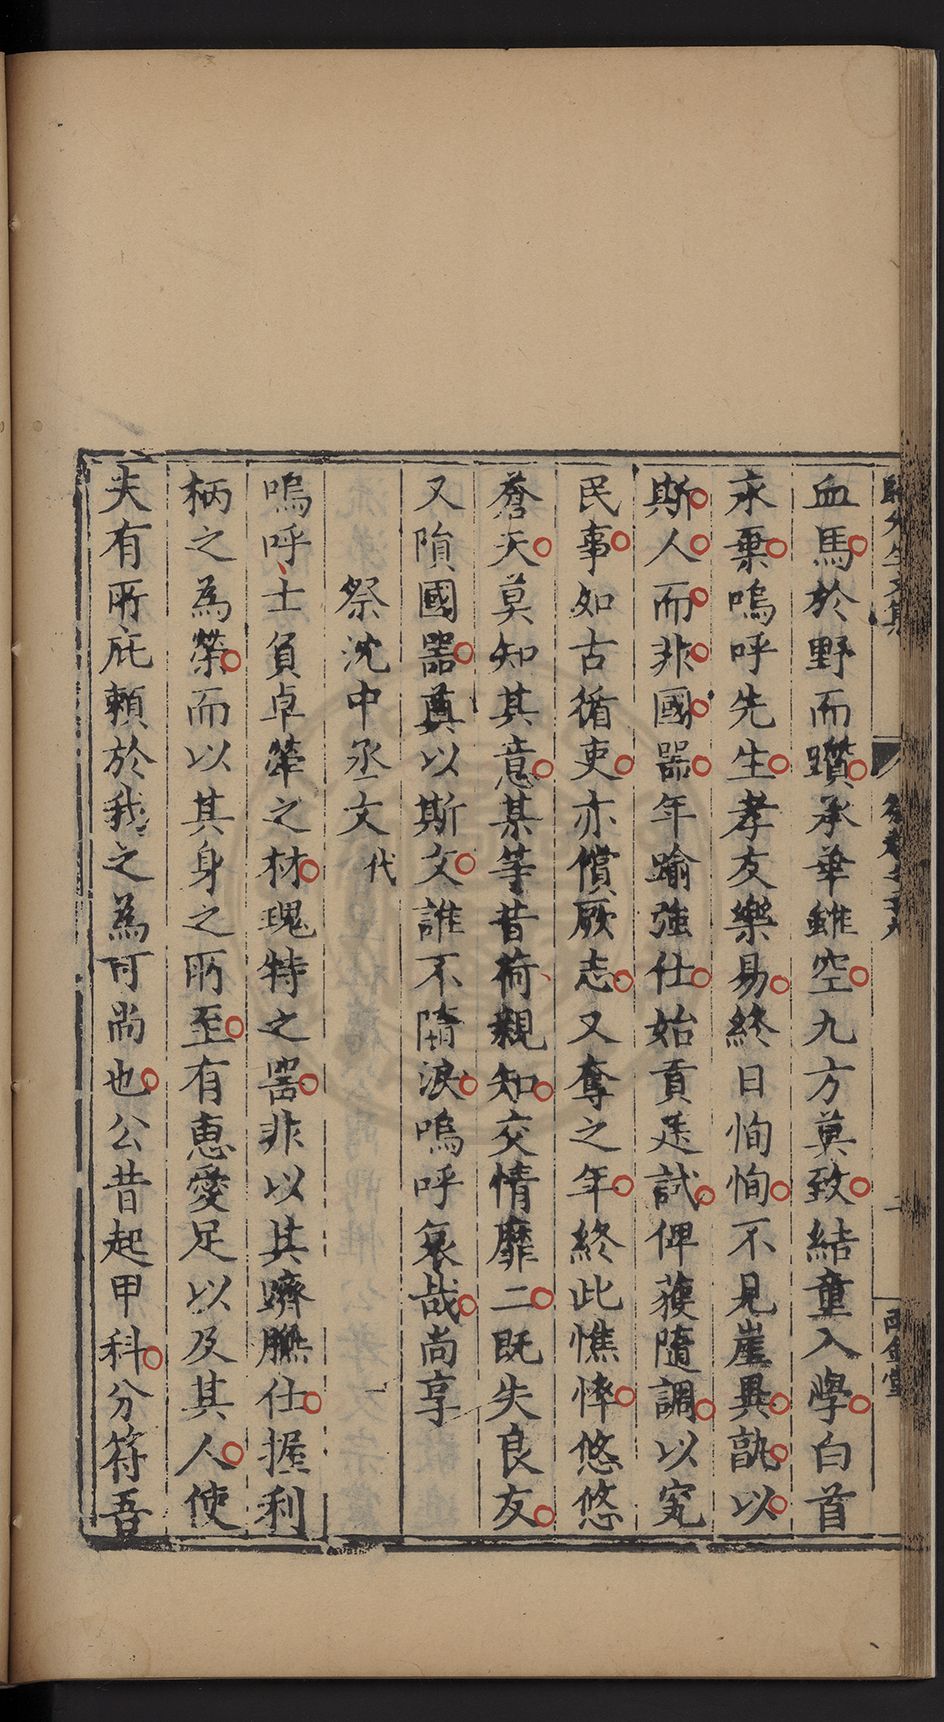 血馬於野而躓承華雖空九方莫致結童入學白首
永棄嗚呼先生孝友樂易終日恂恂不見崖異孰以
斯人而非國器年踰強仕始貢廷試俾獲隨調以究
民事如古循吏亦償厥志又奪之年終此憔悴悠悠
蒼天莫知其意某等昔荷親知交情靡二既失良友
又隕國器奠以斯文誰不隨淚嗚呼哀哉尚享
祭沈中丞文代
嗚呼士負卓犖之材瑰特之器非以其躋膴仕握利
柄之為榮而以其身之所至有惠愛足以及其人使
夫有所庇賴於我之為可尚也公昔起甲科分符吾